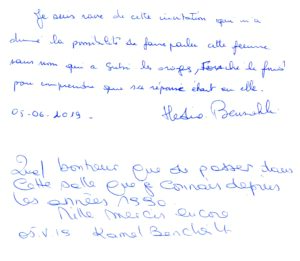 Je suis ravie de cette invitation qui m'a
donné la possibilité de faire parler cette femme
sans nom qui a subi les orages,
pour comprendre que sa réponse était en elle.
05-06-2019.
Quel bonheur que de passer dans
Cette salle que je connais depuis
les années 1990.
Mille mercis encore
05.V.19 Kamel